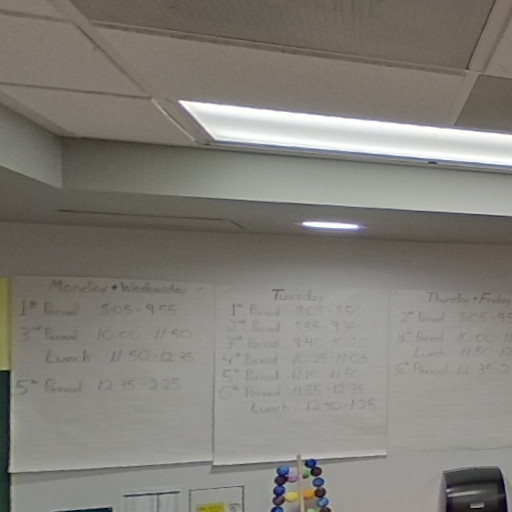 Monday + Wednesday
1st Period 8:05 - 9:55
3rd Period 10:00 - 11:50
Lunch 11:50 - 12:35
5th Period 12:35 - 2:25
Tuesday
1st Period 8:05 - 8:50
2nd Period 8:55 - 9:35
3rd Period 9:40 - 10:20
4th Period 10:25 - 11:05
5th Period 11:10 - 11:50
6th Period 11:55 - 12:35
Lunch 12:40 - 1:25
Thursday + Friday
2nd Period 8:05 - 9:5
4th Period 10:00 - 11
Lunch 11:50 - 12
6th Period 12:35 - 2